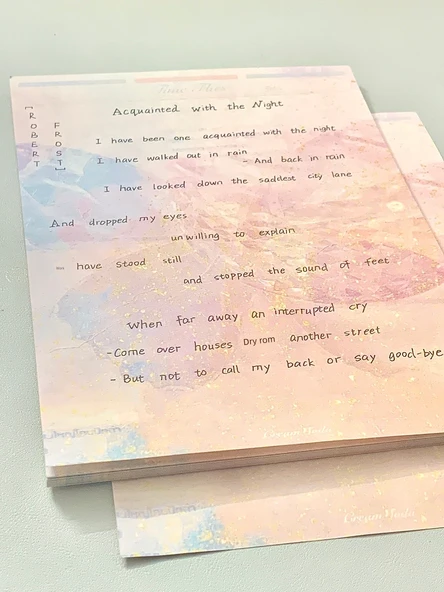 Acquainted with the Night
[ROBERT
FROST]
I have been one acquainted with the night
I have walked out in rain
- And back in rain
I have looked down the saddest city lane
And dropped my eyes
unwilling to explain
have stood still
and stopped the sound of feet
When far away an interrupted cry
-Come over houses Dry rom another street
- But not to call my back or say good-bye